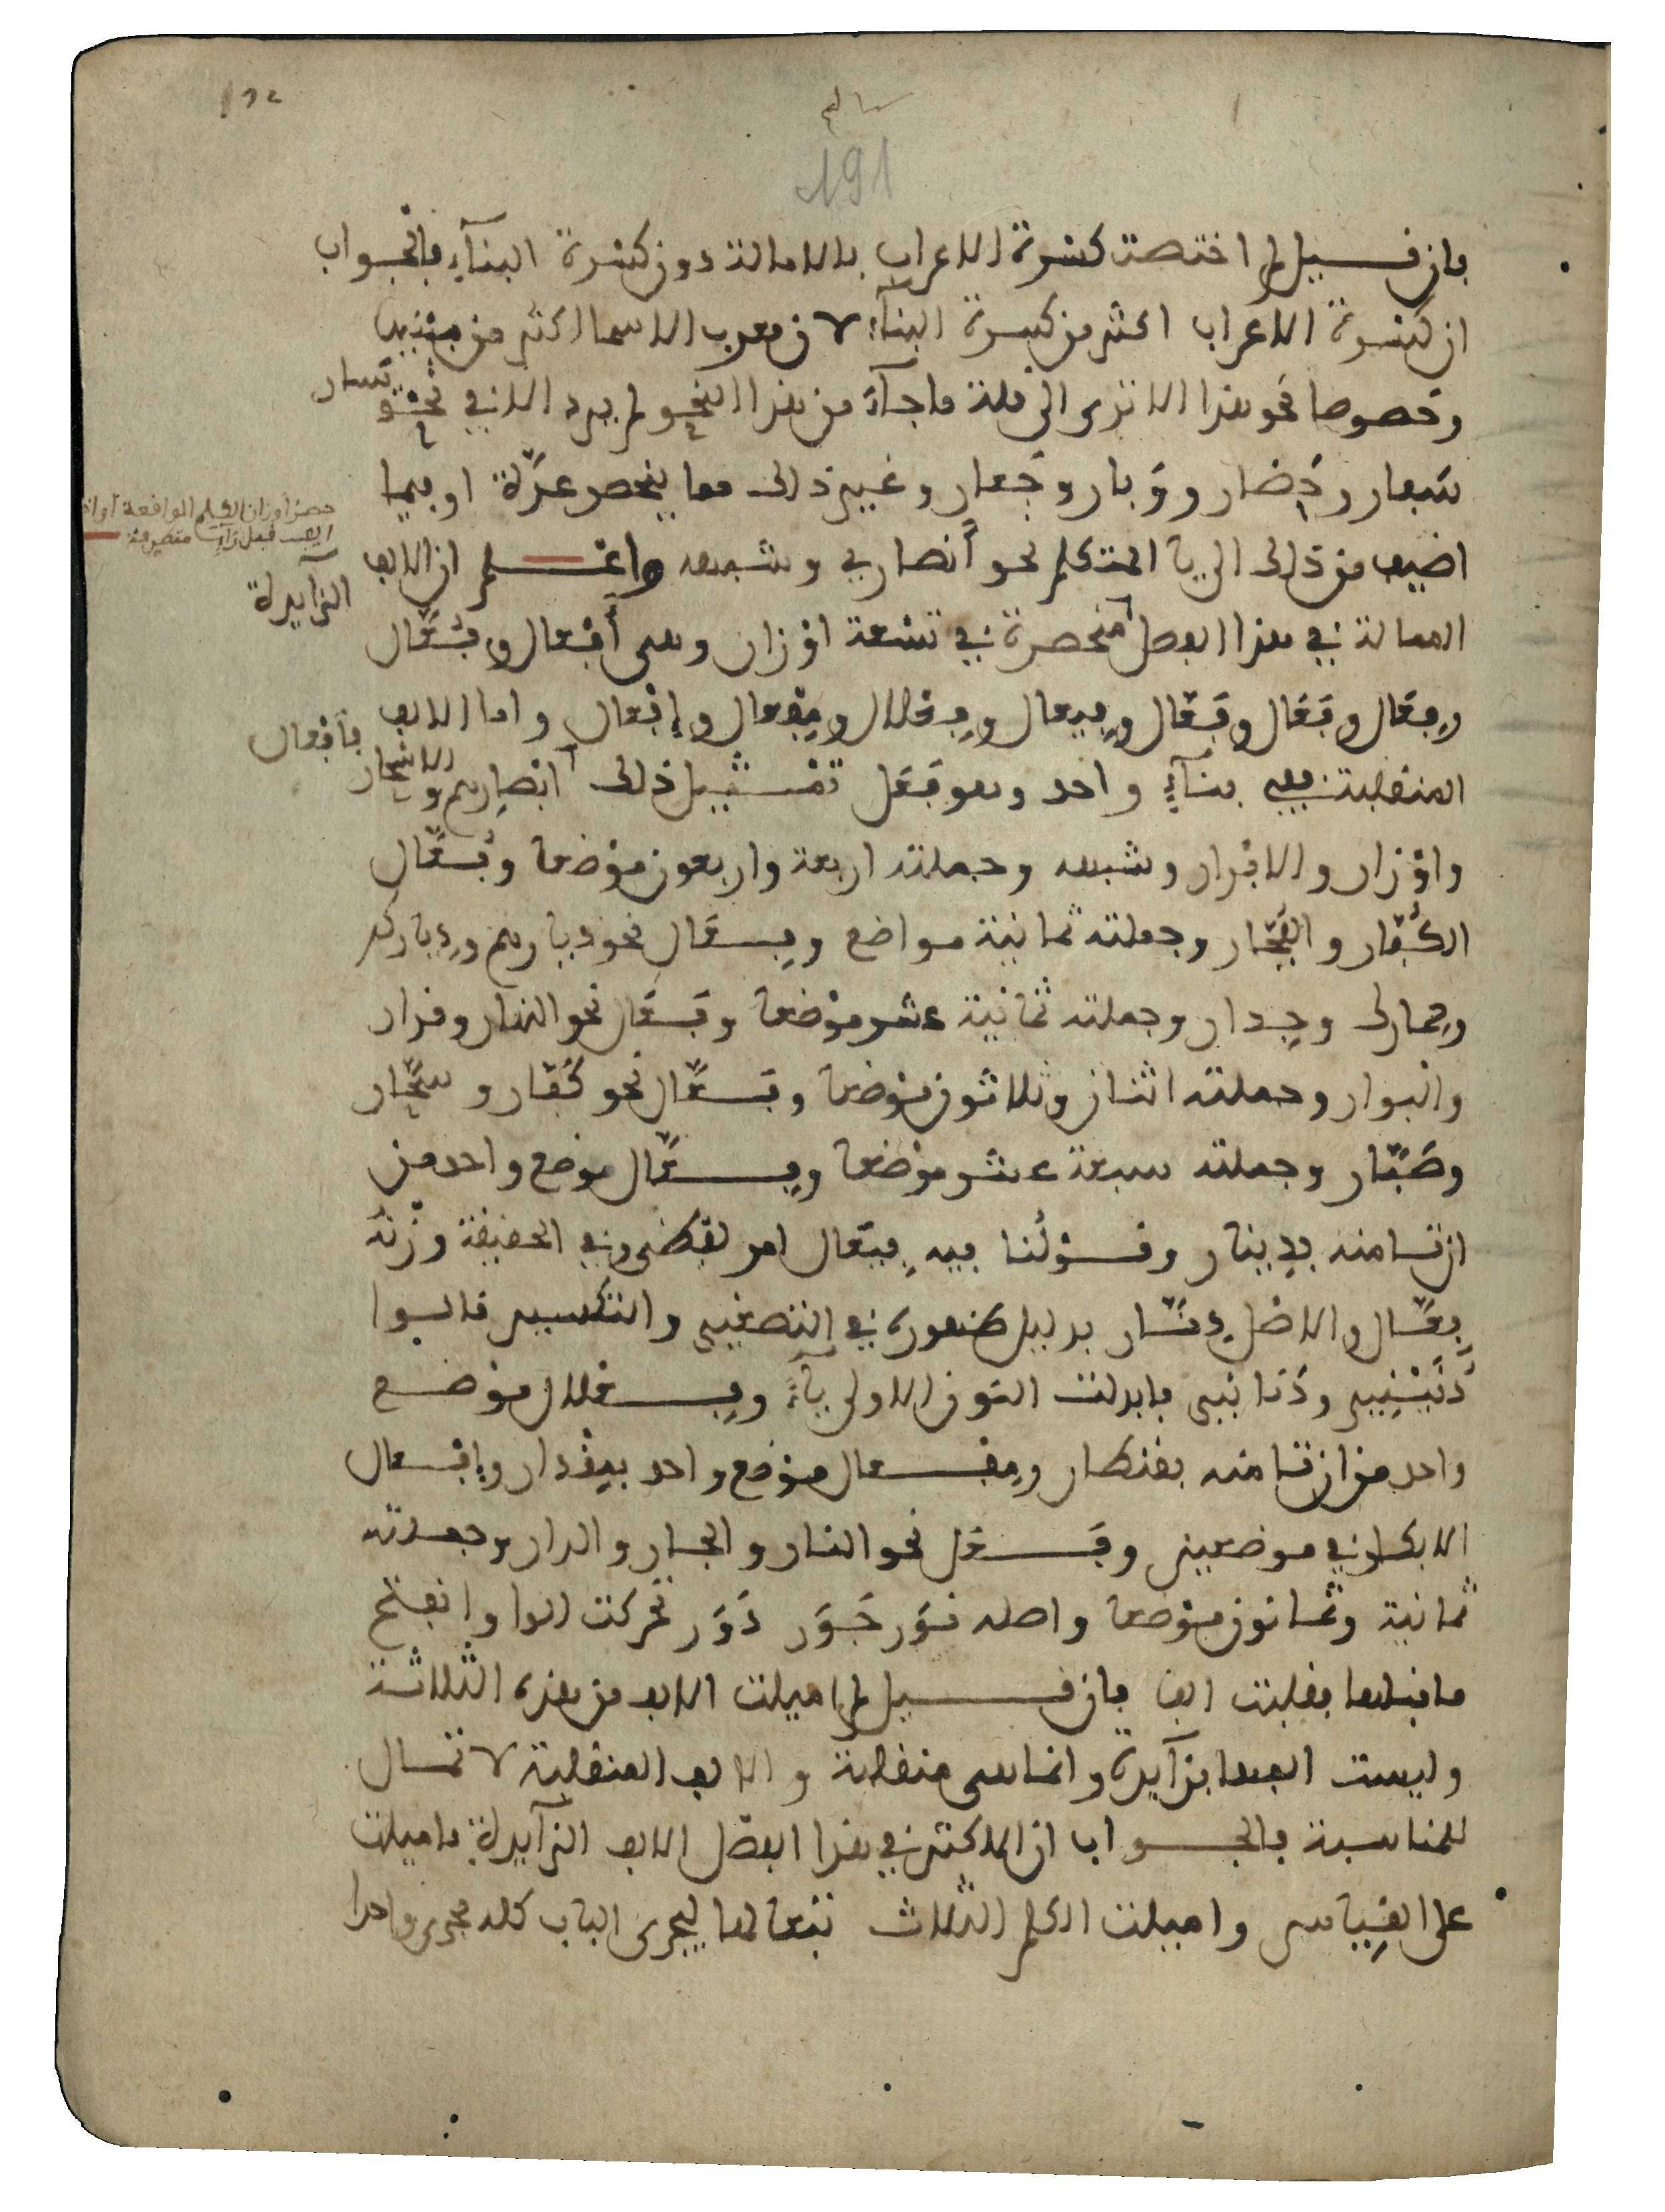 سالم
191
فإن قيل لم اختصت كسرة الاعراب بالامالة دون كسرة البنآء فالجواب
ان كسرة الاعراب اكثر من كسرة البنآء لان معرب الاسما اكثر من مبنيها
وخصوصا نحو هذا الا ترى الى قلة ما جآء من هذا النحو لم يرد الا في نحو يسار
سَفار وحَضار ووَبار وجَعار وغير ذلك مما ينحصر عدّة او فيما
اضيف من ذلك الى يا المتكلم نحو أنصاري وشبهه واعلم ان الالف
الزآيدة
حصر اوزان الكلم الواقعة
الف قبل رآء متصرفة
الممالة في هذا الفصل منحصرة في تسعة اوْزان وهى أَفْعال وفُعَّال
وفِعَال وفَعَال وفَعَّال وفِيعال وفِعْلال ومِفْعال وإفْعال واما الالف
المنقلبة ففي بنآءٍ واحد وهو فَعَل تمثيل ذلك ابْصارهم والاسْحار
فأفعال
واوْزار والابْرار وشبهه وجملته اربعة واربعون موْضعا وفُعَّال
الكُفّار والفُجّار وجملته ثمانية مواضع وفِعَال نحو ديارهم ودِياركم
وحِمارك وجِدار وجملته ثمانية عشر موْضعا وفَعَال نحو النهار وقرار
والبوار وجملته اثنان وثلاثون موْضعا وفَعَّال نحو كَفّار وسَحّار
وصَبّار وجملته سبعة عشر موْضعا وفِيعَال موضع واحد من
ان تامنه بدينار وقوْلُنا فيهِ فيعَال امر لفظى وفي الحقيقة وزْنُه
فِعَّال والاصْل دِنّار بدليل ظهوره في التصغير والتكسير قالوا
دُنَيْنِير ودَنانير فابدلت النون الاولى يآءً وفِعْلال موْضع
واحد من ان تامنه بقنطار ومِفْعال موْضع واحد بمِقْدار وإفْعال
الابكار في موضعين وفَعَل نحو النار والجار والدار وجملته
ثمانية وثمانون موْضعا واصله نَوَر جَوَر دَوَر تحركت الواو وانفتح
ما قبلها فقلبت الفا فإن قيل لم اميلت الالف من هذه الثلاثة
وليست الفها بزآيدة وانما هى منقلبة والالف المنقلبة لا تمال
للمناسبة فالجواب ان الاكثر في هذا الفصل الالف الزآيدة فاميلت
على القِياس واميلت الكلم الثلاث تبعا لها ليجرى الباب كله مجرى واحدا